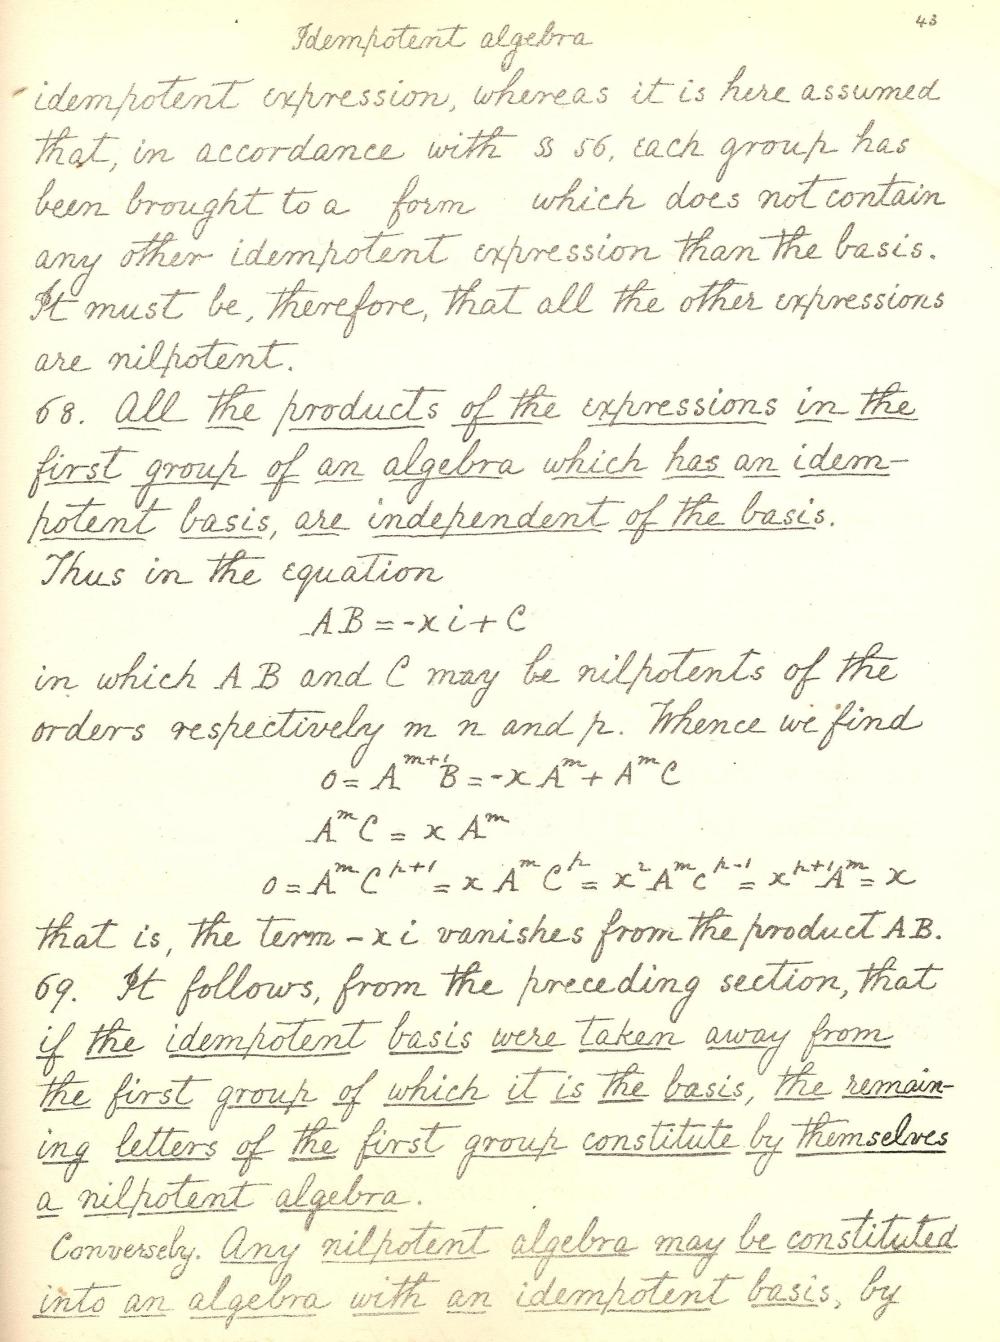 43
Idempotent algebra
idempotent expression, whereas it is here assumed
that, in accordance with §§ 56, each group has
been brought to a form which does not contain
any other idempotent expression than the basis.
It must be, therefore, that all the other expressions
are nilpotent.
68. All the products of the expressions in the
first group of an algebra which has an idem-
potent basis, are independent of the basis.
Thus in the equation
AB = -x i + C
in which A B and C may be nilpotents of the
orders respectively m n and p. Whence we find
0 = A^{m+1} B = -x A^m + A^m C
A^m C = x A^m
0 = A^m C^{p+1} = x A^m C^p = x^2 A^m C^{p-1} = x^{p+1} A^m = x
that is, the term - x i vanishes from the product AB.
69. It follows, from the preceding section, that
if the idempotent basis were taken away from
the first group of which it is the basis, the remain-
ing letters of the first group constitute by themselves
a nilpotent algebra.
Conversely. Any nilpotent algebra may be constituted
into an algebra with an idempotent basis, by